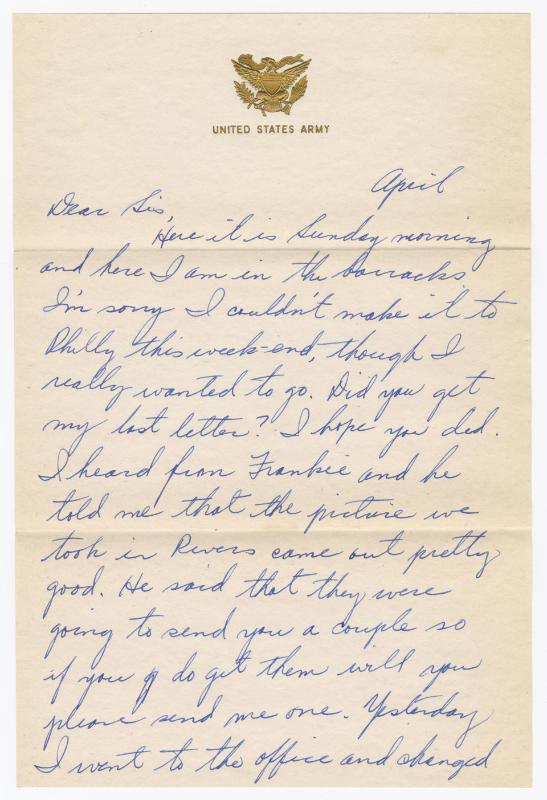 UNITED STATES ARMY
April
Dear Sis,
Here it is Sunday morning
and here I am in the barracks
I'm sorry I couldn't make it to
Philly this week-end, though I
really wanted to go. Did you get
my last letter? I hope you did.
I heard from Frankie and he
told me that the picture we
took in Rivers came out pretty
good. He said that they were
going to send you a couple so
if you do get them will you
please send me one. Yesterday
I went to the office and changed